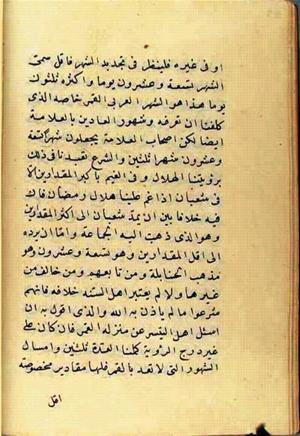 او فى غيره فلينظر فى تجديد الشهر فاقل سمى
الشهر تسعة وعشرون يوما واكثره ثلثون
يوما هذا هو الشهر العربى القمرى خاصه الذى
كلفنا ان نعرفه وشهور العادين بالعلامة
ايضا لكن اصحاب العلامة يجعلون شهرا تسعة
وعشرون وشهرا ثلثين والشرع تعبدنا فى ذلك
برؤيتنا الهلال وفى الغيم باكبر المقدارين الا
فى شعبان اذا غم علينا هلال رمضان فان
فيه خلافا بين ان نمد شعبان الى اكثر المقدارين
وهو الذى ذهبت اليه الجماعة واما ان نرده
الى اقل المقدارين وهو تسعة وعشرون وهو
مذهب الحنابلة ومن تابعهم ومن خالف من
غير هاولا لم يعتبر اهل السنه خلافه فانهم
شرعوا ما لم ياذن به الله والذى اقول به ان
اسئل اهل التيسر عن منزله القمر فان كان على
غير درج الروية كملنا العدة ثلثين واما سال
الشهور التى لا تعد بالقمر فلها مقادير مخصوصة
اقل